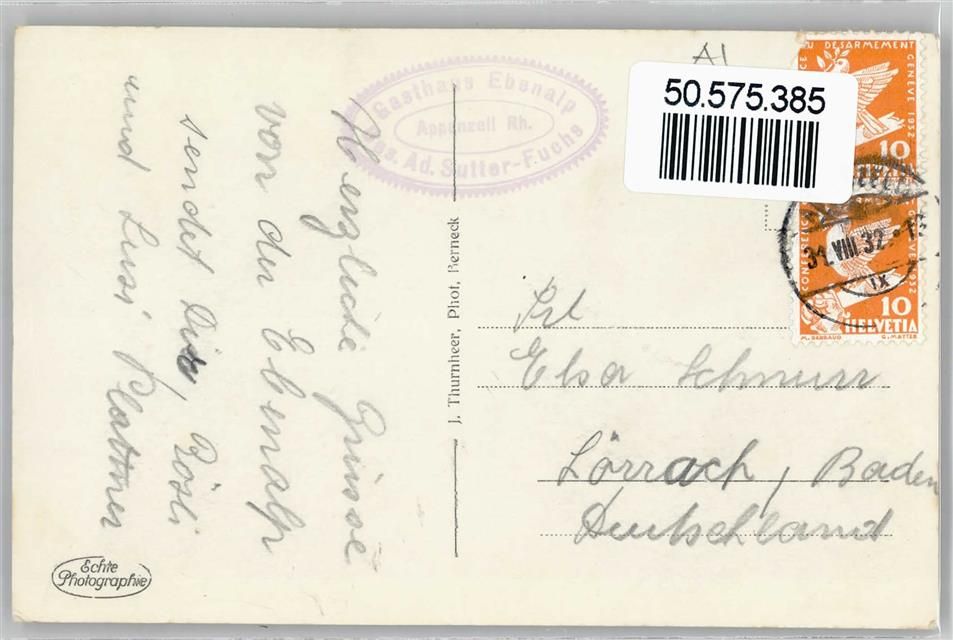 Herzliche Grüsse
von der Ebenalp
sendet Dir, Rösli
und Lusi Plattner
Echte
Photographie
Gasthaus Ebenalp
Appenzell Rh.
Bes. Ad. Sutter-Fuchs
J. Thurnheer, Phot, Berneck
A1
50.575.385
DU DESARMEMENT
GENÈVE 1932
10
HELVETIA
31.VIII.32.
IX
CONFERENCE
10
HELVETIA
Frl
Elsa Schnurr
Lörrach, Baden
Deutschland